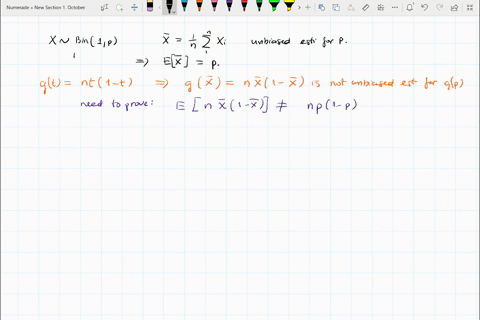 Numerade » New Section 1. October
X ~ Bin(1,p)    X̄ = 1/n Σ₁ⁿ Xᵢ    unbiased esti for p.
⟹ E[X̄] = p.
g(t) = nt(1-t) ⟹ g(X̄) = n X̄(1-X̄) is not unbiased est for g(p)
need to prove: E[n X̄(1-X̄)] ≠ np(1-p)